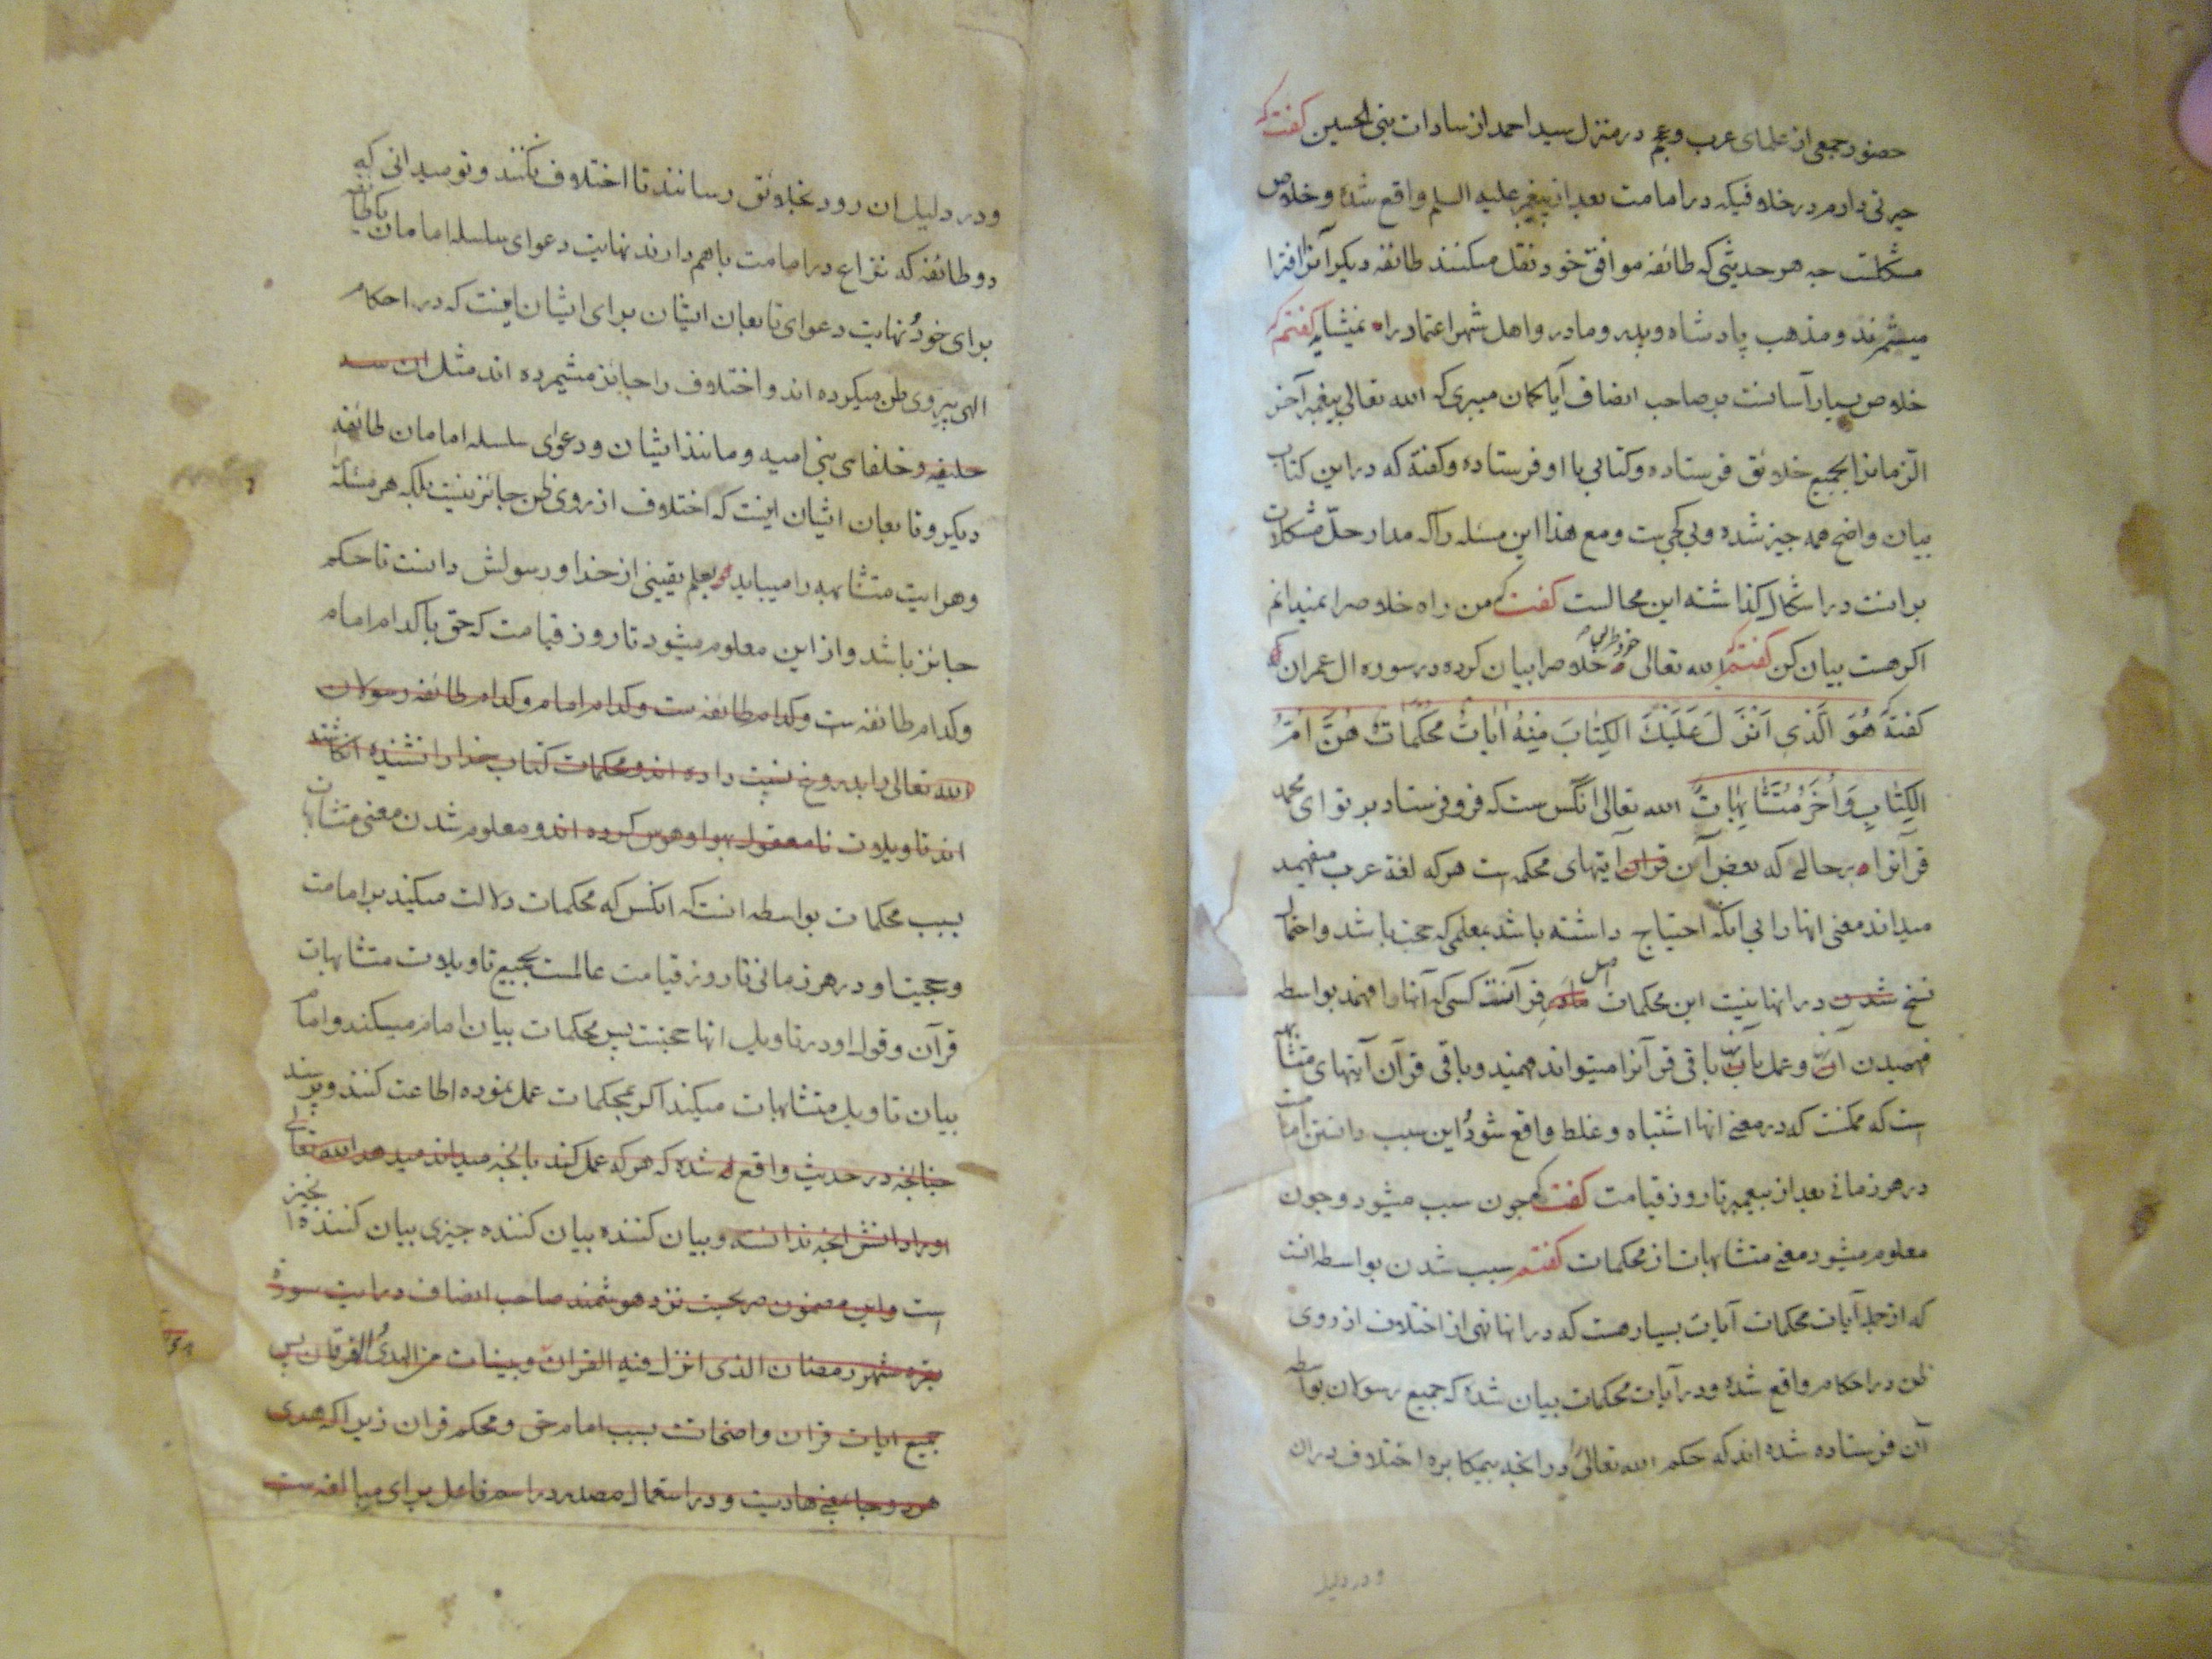 حضور جمعی از علمای عرب و عجم در منزل سید احمد از سادات بنی الحسین گفت که
حیرتی دارم در خلافیکه در امامت بعد از پیغمبر علیه السلم واقع شده و خلاص
مشکلست چه هر حدیثی که طائفه موافق خود نقل میکنند طائفه دیگر آنرا افترا
میشمرند و مذهب پادشاه و پدر و مادر و اهل شهر اعتماد را نمیشاید گفتم که
خلاص بسیار آسانست بر صاحب انصاف آیا گمان میبری که الله تعالی پیغمبر آخر
الزمانرا بجمیع خلائق فرستاده و کتابی با او فرستاده و گفته که در این کتاب
بیان واضح همه چیز شده و بی کجی ست و مع هذا این مسئله را که مدار حل مشکلات
بر انست در اشکال گذاشته این محالست گفت که من راه خلاص را نمیدانم
اگر هست بیان کن گفتم که الله تعالی خود طریق خلاص را بیان کرده در سوره ال عمران که
گفته هُوَ الَّذِی اَنْزَلَ عَلَیْکَ الکِتٰابَ مِنْهُ اٰیٰاتٌ مُحْکَمٰاتٌ هُنَّ اُمُّ
الکِتٰابِ وَ اُخَرُ مُتَشٰابِهٰاتٌ الله تعالی آنکس ست که فرو فرستاد بر تو ای محمد
قرآنرا بر حالی که بعض آن قران آیتهای محکمه است هر که لغة عرب میفهمد
میداند معنی انها را بی انکه احتیاج داشته باشد بمعلمی که حجت باشد و احتمال
نسخ شدن در انها نیست این محکمات اصل مادر قرآنند کسی که آنها را فهمد بواسطه
فهمیدن آن و عمل بآن باقی قرآنرا میتواند فهمید و باقی قرآن آیتهای متشابهه
است که ممکنست که در معنی انها اشتباه و غلط واقع شود این سبب دانستن امامت
در هر زمانی بعد از پیغمبر تا روز قیامت گفت که چون سبب میشود و چون
معلوم میشود معنی متشابهات از محکمات گفتم سبب شدن بواسطه انست
که از جمله آیات محکمات آیات بسیار هست که در انها نهی از اختلاف از روی
ظن در احکام واقع شده و در آیات محکمات بیان شده که جمیع رسولان بواسطه
آن فرستاده شده اند که حکم الله تعالی را در انچه بیمکابره اختلاف در ان
و در دلیل
و در دلیل ان رود بخلائق رسانند تا اختلاف نکنند و تو میدانی که
دو طائفه که نزاع در امامت با هم دارند نهایت دعوای سلسله امامان یکطائفه
برای خود و نهایت دعوای تابعان ایشان برای ایشان اینست که در احکام
الهی پیروی ظن میکرده اند و اختلاف را جایز میشمرده اند مثل ان سه
خلیفه و خلفای بنی امیه و مانند ایشان و دعوای سلسله امامان طائفه
دیگر و تابعان ایشان اینست که اختلاف از روی ظن جائز نیست بلکه هر مسئله
و هر ایت متشابهه را میباید بعلم یقینی از خدا و رسولش دانست تا حکم
جائز باشد و از این معلوم میشود تا روز قیامت که حق با کدام امام
و کدام طائفه ست و کدام طائفه ست و کدام امام و کدام طائفه رسولان
الله تعالی را بدروغ نسبت داده اند و محکمات کتاب خدا را نشنیده انگاشته
اند تاویلات نامعقول بهوا و هوس کرده اند و معلوم شدن معنی متشابهات
بسبب محکمات بواسطه انست که انکس که محکمات دلالت میکند بر امامت
و حجیت او در هر زمانی تا روز قیامت عالمست بجمیع تاویلات متشابهات
قرآن و قول او در تاویل انها حجتست پس محکمات بیان امام میکند و امام
بیان تاویل متشابهات میکند اگر بمحکمات عمل نموده اطاعت کنند و پرسند
چنانچه در حدیث واقع شده که هر که عمل کند بانچه میداند میدهد الله تعالی
او را دانش انچه ندانسته و بیان کننده بیان کننده چیزی بیان کننده ان چیز
است و این مضمون صریحست نزد هوشمند صاحب انصاف در ایت سوره
بقره شهر رمضان الذی انزل فیه القران و بینات من الهدی و الفرقان پس
جمیع ایات قران واضحاتست بسبب امام حق و محکم قران زیرا که هدی
هر دو جا بمعنی هادیست و در استعمال مصدر در اسم فاعل برای مبالغه ست